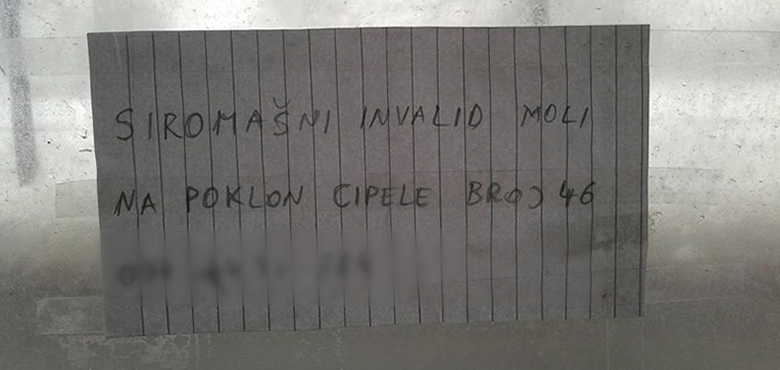 SIROMAŠNI INVALID MOLI
NA POKLON CIPELE BROJ 46